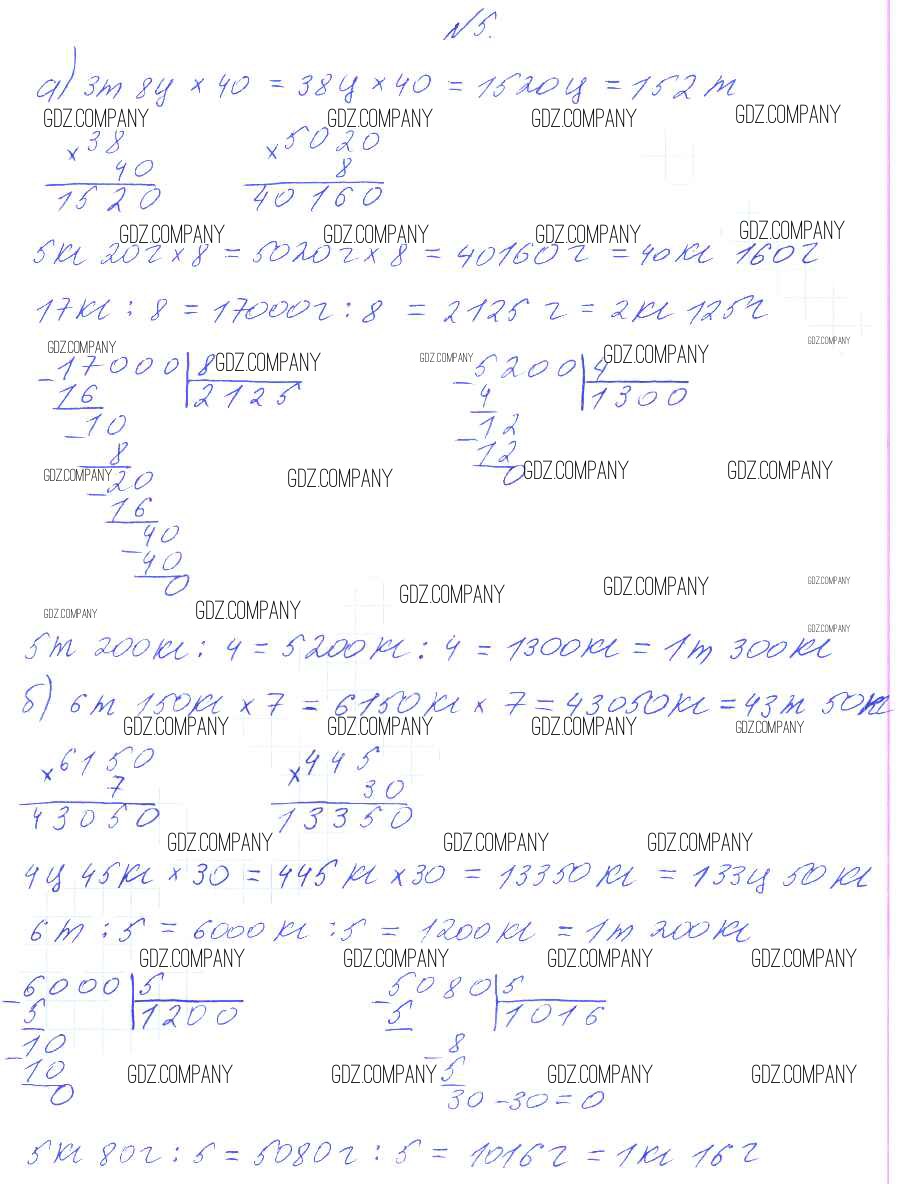 №5.
а) 3т 8ц × 40 = 38ц × 40 = 1520ц = 152т
GDZ.COMPANY GDZ.COMPANY GDZ.COMPANY GDZ.COMPANY
×38 ×5020
40 8
1520 40160
GDZ.COMPANY GDZ.COMPANY GDZ.COMPANY GDZ.COMPANY
5кг 20г × 8 = 5020г × 8 = 40160г = 40кг 160г
17кг : 8 = 17000г : 8 = 2125г = 2кг 125г
GDZ.COMPANY GDZ.COMPANY GDZ.COMPANY GDZ.COMPANY GDZ.COMPANY
-17000 8 -5200 4
16 2125 4 1300
-10 -12
8 12
GDZ.COMPANY -20 GDZ.COMPANY 0 GDZ.COMPANY GDZ.COMPANY
16
-40
40
0
GDZ.COMPANY GDZ.COMPANY GDZ.COMPANY GDZ.COMPANY GDZ.COMPANY
GDZ.COMPANY
5т 200кг : 4 = 5200кг : 4 = 1300кг = 1т 300кг
б) 6т 150кг × 7 = 6150кг × 7 = 43050кг = 43т 50кг
GDZ.COMPANY GDZ.COMPANY GDZ.COMPANY GDZ.COMPANY
×6150 ×445
7 30
43050 13350
GDZ.COMPANY GDZ.COMPANY GDZ.COMPANY
4ц 45кг × 30 = 445кг × 30 = 13350кг = 133ц 50кг
6т : 5 = 6000кг : 5 = 1200кг = 1т 200кг
GDZ.COMPANY GDZ.COMPANY GDZ.COMPANY GDZ.COMPANY
-6000 5 -5080 5
5 1200 5 1016
-10 -8
10 GDZ.COMPANY GDZ.COMPANY 5 GDZ.COMPANY GDZ.COMPANY
0 30-30=0
5кг 80г : 5 = 5080г : 5 = 1016г = 1кг 16г